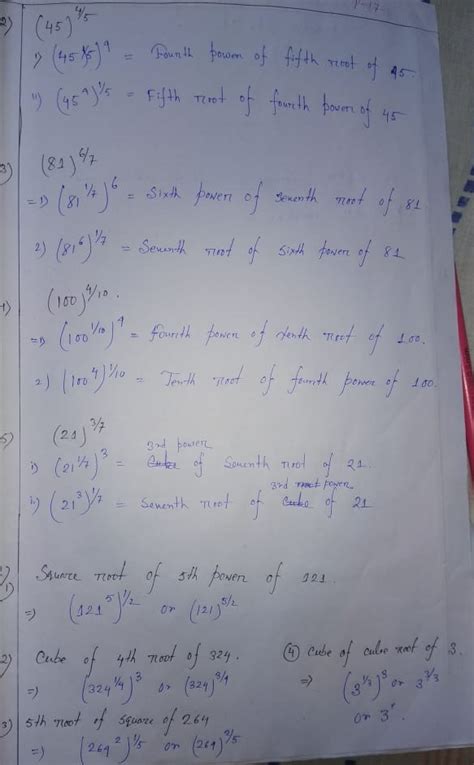 2) (45)^4/5
i) (45^1/5)^4 = Fourth power of fifth root of 45.
ii) (45^4)^1/5 = Fifth root of fourth power of 45
3) (81)^6/7
=1) (81^1/7)^6 = Sixth power of seventh root of 81
2) (81^6)^1/7 = Seventh root of sixth power of 81
4) (100)^4/10.
=1) (100^1/10)^4 = Fourth power of tenth root of 100.
2) (100^4)^1/10 = Tenth root of fourth power of 100.
5) (21)^3/7
3rd power
i) (21^1/7)^3 = Cube of Seventh root of 21.
3rd root power
ii) (21^3)^1/7 = Seventh root of Cube of 21
1) Square root of 5th power of 121.
=> (121^5)^1/2 or (121)^5/2
2) Cube of 4th root of 324.
=> (324^1/4)^3 or (324)^3/4
3) 5th root of square of 264
=> (264^2)^1/5 or (264)^2/5
④ Cube of cube root of 3.
=> (3^1/3)^3 or 3^3/3
or 3^1.